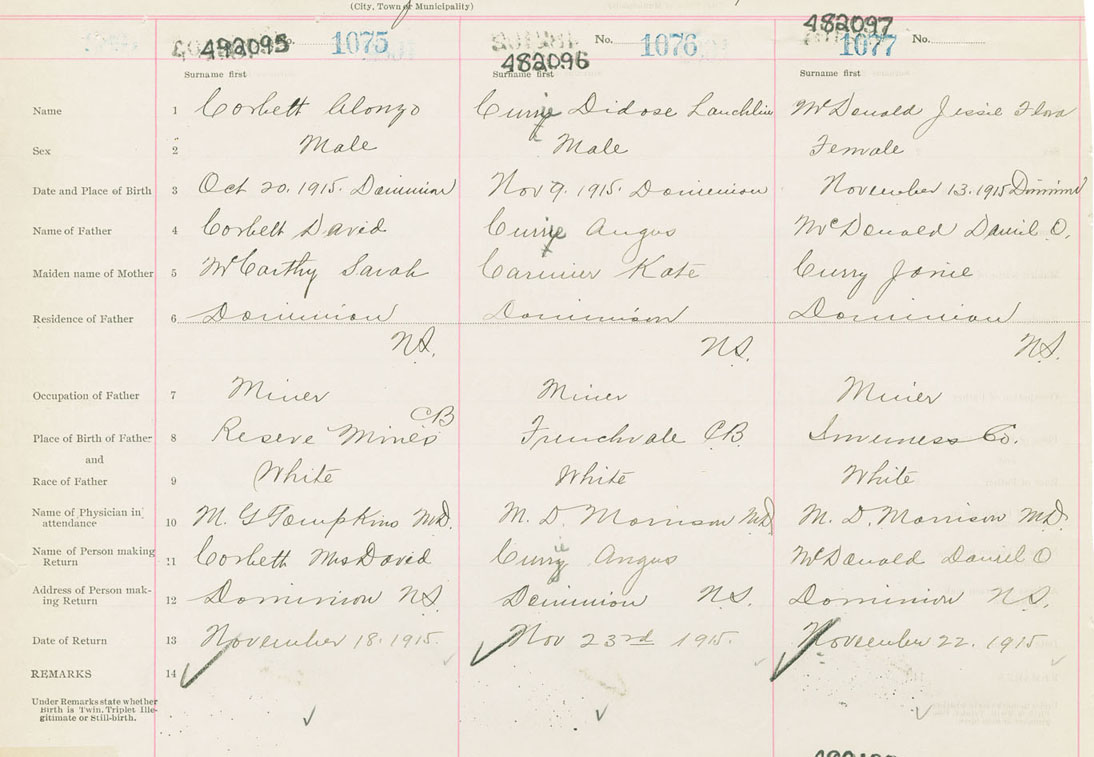 (City, Town or Municipality)
482095 No. 1075 482096 No. 1076 482097 1077 No.
Surname first Surname first Surname first
Name 1 Corbett Alonzo Currie Didose Lauchlin McDonald Jessie Flora
Sex 2 Male Male Female
Date and Place of Birth 3 Oct 20. 1915. Dominion Nov 9. 1915. Dominion November 13. 1915 Dominion
Name of Father 4 Corbett David Currie Angus McDonald Daniel O.
Maiden name of Mother 5 McCarthy Sarah Carmier Kate Curry Janie
Residence of Father 6 Dominion Dominion Dominion
N.S. N.S. N.S.
Occupation of Father 7 Miner Miner Miner
Place of Birth of Father 8 Reserve Mines CB Frenchvale C.B. Inverness Co.
and
Race of Father 9 White White White
Name of Physician in attendance 10 M. G Tompkins M.D. M. D. Morrison MD M. D. Morrison M.D.
Name of Person making Return 11 Corbett Mrs David Currie Angus McDonald Daniel O
Address of Person making Return 12 Dominion N.S. Dominion N.S. Dominion N.S.
Date of Return 13 November 18. 1915. Nov 23rd 1915. November 22. 1915
REMARKS 14
Under Remarks state whether
Birth is Twin. Triplet Ille-
gitimate or Still-birth.